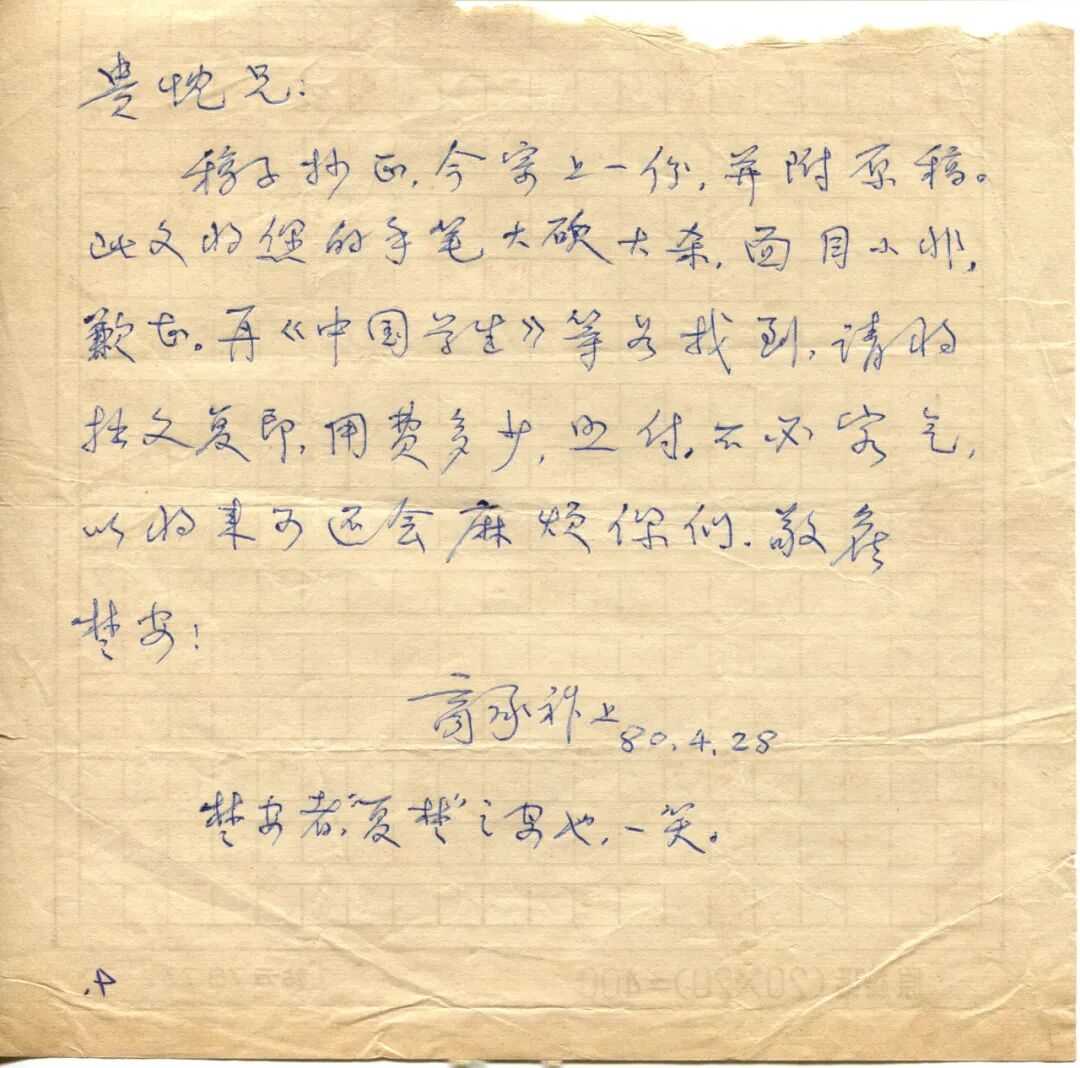 贵忱兄：
稿子抄正，今寄上一份，并附原稿。
此文将您的手笔大砍大杀，面目小非，
歉甚。再《中国学生》等如找到，请将
拙文复印，用费多少，照付，不必客气，
以将来可还会麻烦你们。敬候
楚安！
商承祚上
80.4.28
楚安者，“复楚”之安也，一笑。
(20×20)=400